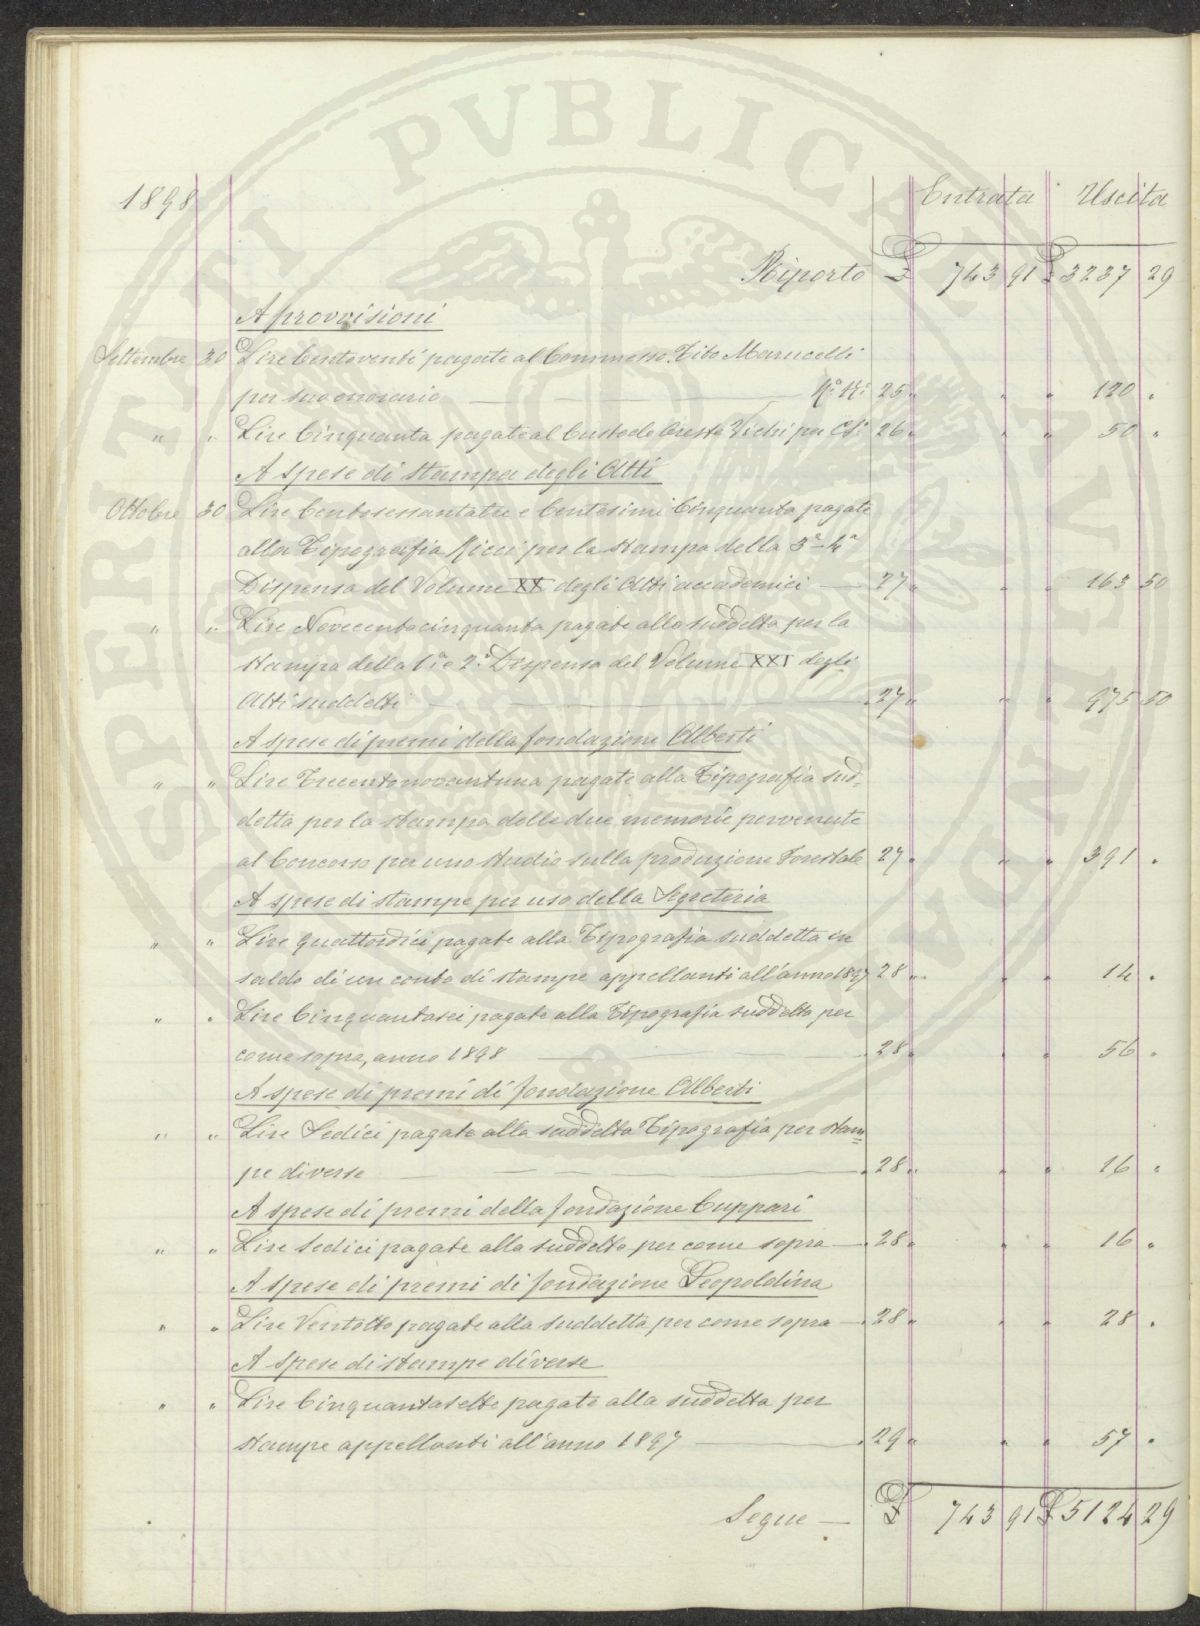 PROSPERITATI PVBLICAE AVGENDAE
1898 Entrata Uscita
Riporto £ 743 91 £ 3237 29
A provvisioni
Settembre 30 Lire Centoventi pagate al Commesso Tito Marucelli
per suo onorario 25 " " " 120 "
" " Lire Cinquanta pagate al Custode Oreste Vichi per 26 " " " 50 "
A spese di stampa degli Atti
Ottobre 30 Lire Centosessantatre e Centesimi Cinquanta pagate
alla Tipografia Ricci per la stampa della 3ª-4ª
Dispensa del Volume XX degli Atti accademici 27 " " " 163 50
" " Lire Novecentocinquanta pagate alla suddetta per la
stampa della 1ª e 2ª Dispensa del Volume XXI degli
Atti suddetti 27 " " " 975 50
A spese di premi della fondazione Alberti
" " Lire Trecentonovantuna pagate alla Tipografia sud=
detta per la stampa delle due memorie pervenute
al Concorso per uno studio sulla produzione Forestale 27 " " " 391 "
A spese di stampe per uso della Segreteria
" " Lire quattordici pagate alla Tipografia suddetta in
saldo di un conto di stampe appellanti all'anno 1897 28 " " " 14 "
" " Lire Cinquantasei pagate alla Tipografia suddetta per
come sopra, anno 1898 28 " " " 56 "
A spese di premi di fondazione Alberti
" " Lire Sedici pagate alla suddetta Tipografia per stam=
pe diverse 28 " " " 16 "
A spese di premi della fondazione Cuppari
" " Lire Sedici pagate alla suddetta per come sopra 28 " " " 16 "
A spese di premi di fondazione Leopoldina
" " Lire Ventotto pagate alla suddetta per come sopra 28 " " " 28 "
A spese di stampe diverse
" " Lire Cinquantasette pagate alla suddetta per
stampe appellanti all'anno 1897 29 " " " 57 "
Segue £ 743 91 £ 5124 29